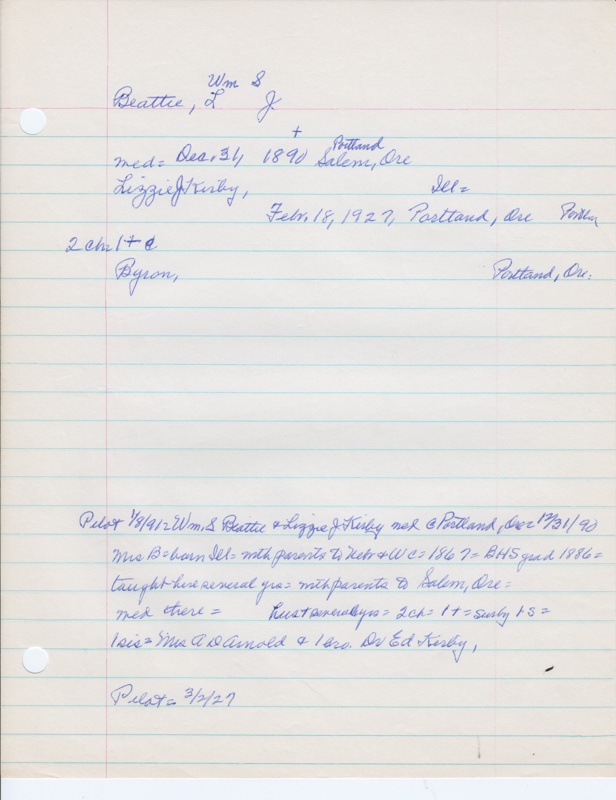 Wm S
Beattie, L J.
+
Portland
med = Dec, 31, 1890 Salem, Ore
Lizzie J Kirby, Ill =
Febr. 18, 1927, Portland, Ore
2 ch 1 +
Byron, Portland, Ore.
Pilot 1/8/91 = Wm. S Beattie & Lizzie J Kirby med @ Portland, Ore = 12/31/90
Mrs B = born Ill = mth parents to Nebr & WC = 1867 = BHS grad 1886 =
taught here several yrs = mth parents to Salem, Ore =
med there = several yrs = 2 ch = 1 + = surby 1 S =
1 sis = Mrs A D Arnold & 1 bro. Dr Ed Kirby,
Pilot = 3/2/27